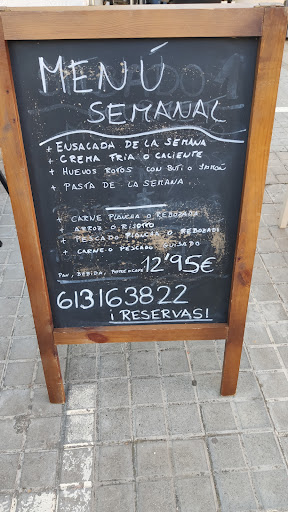 MENÚ
SEMANAL
+ ENSALADA DE LA SEMANA
+ CREMA FRIA O CALIENTE
+ HUEVOS ROTOS CON BUTI O JAMÓN
+ PASTA DE LA SEMANA
+ CARNE PLANCHA O REBOZADA
+ ARROZ O RISOTTO
+ PESCADO PLANCHA O REBOZADO
+ CARNE O PESCADO GUISADO
PAN, BEBIDA, POSTRE O CAFE 12'95€
613163822
¡RESERVAS!